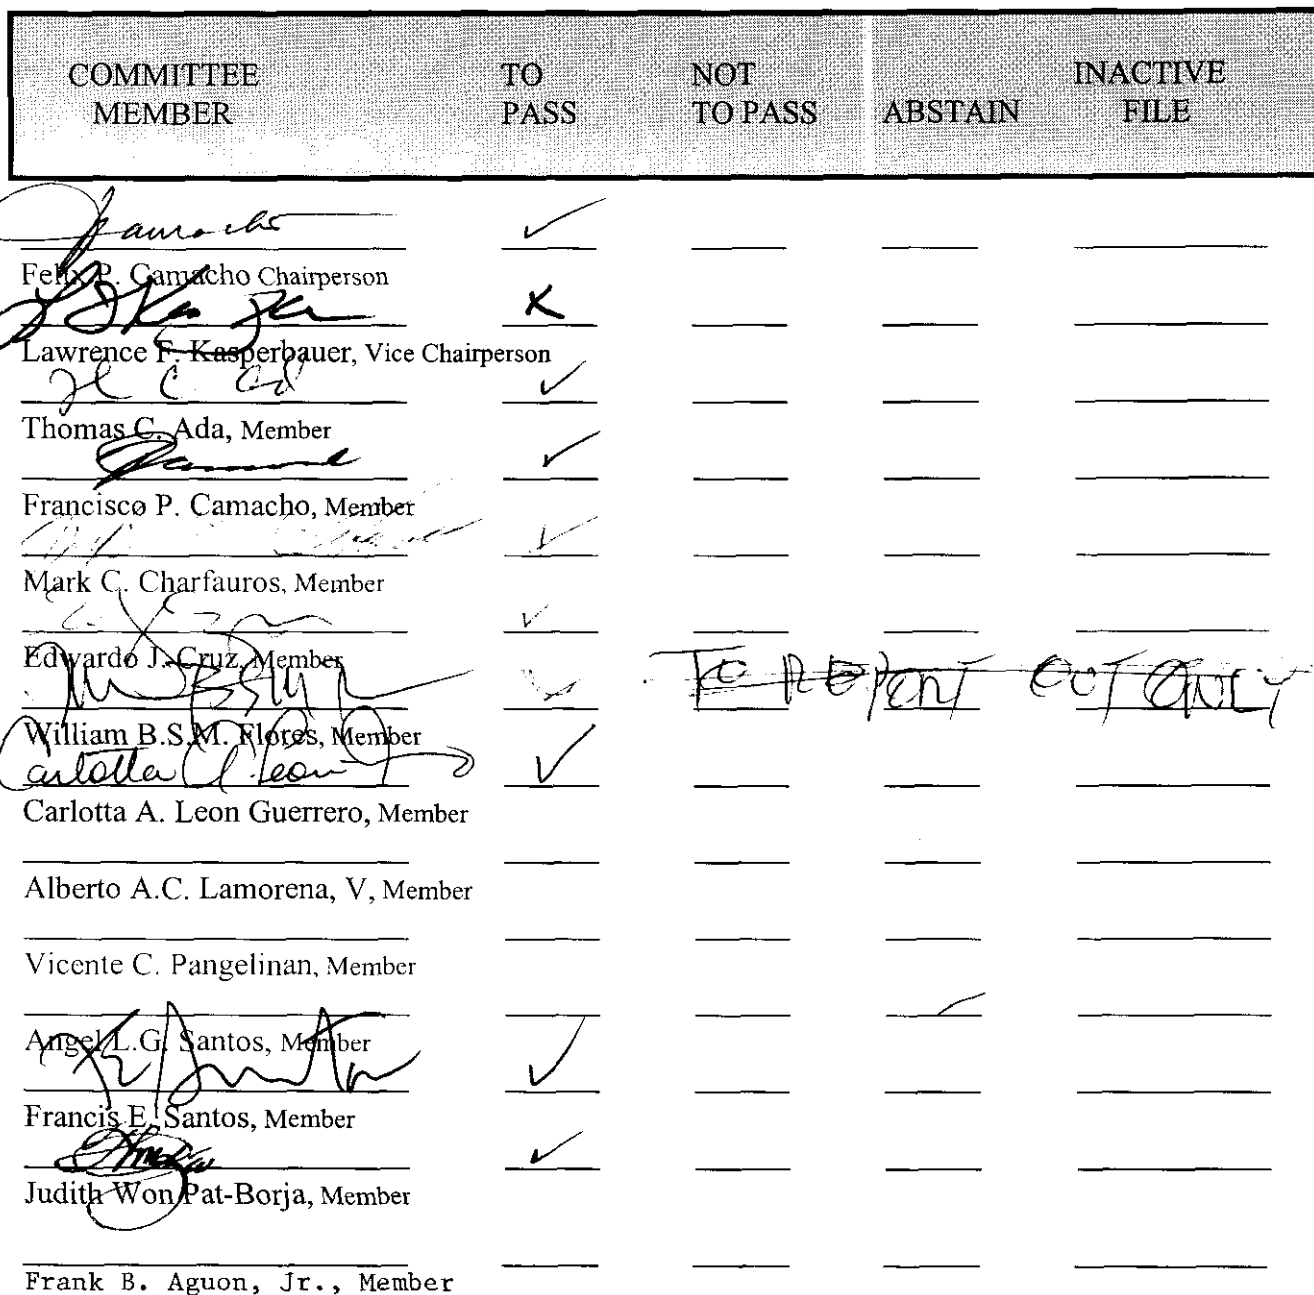 COMMITTEE MEMBER TO PASS NOT TO PASS ABSTAIN INACTIVE FILE
Felix P. Camacho Chairperson
Lawrence F. Kasperbauer, Vice Chairperson
Thomas C. Ada, Member
Francisco P. Camacho, Member
Mark C. Charfauros, Member
Edwardo J. Cruz, Member
TO REPORT OUT ONLY
William B.S.M. Flores, Member
Carlotta A. Leon Guerrero, Member
Alberto A.C. Lamorena, V, Member
Vicente C. Pangelinan, Member
Angel L.G. Santos, Member
Francis E. Santos, Member
Judith Won Pat-Borja, Member
Frank B. Aguon, Jr., Member